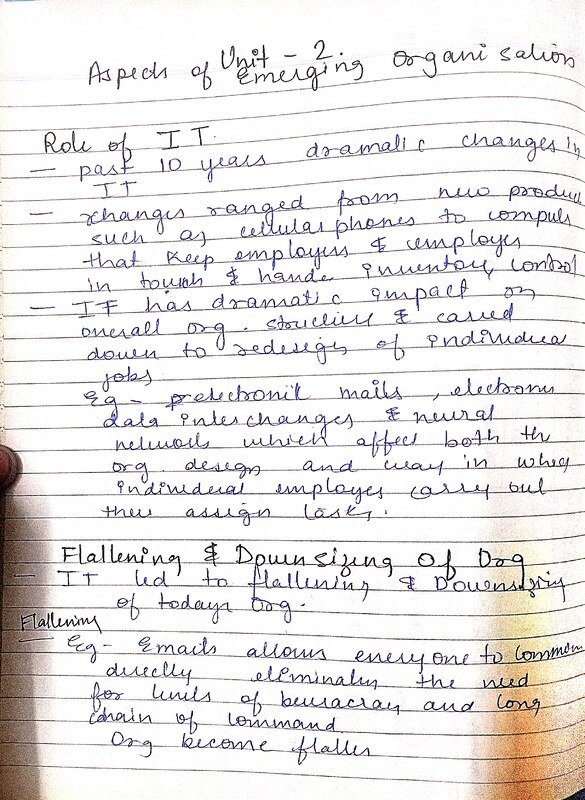 Unit - 2.
Aspects of Emerging Organisation
Role of IT.
— past 10 years dramatic changes in
IT
— changes ranged from new produc
such as cellular phones to compute
that keep employers & employes
in touch & handle inventory control
— IT has dramatic impact on
overall org. structure & carred
down to redesign of individua
jobs
Eg - electronik mails, electroni
data interchanges & neural
networks which affect both th
org. design and way in which
individual employes carry out
their assign tasks.
Flattening & Downsizing Of Org
— IT led to flattening & Downsizing
of todays Org.
Flattening
— Eg - Emails allows everyone to Commun
directly eliminates the need
for levels of beuracray and long
chain of command
Org become flatter